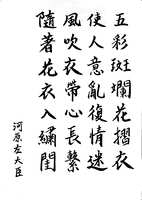 五彩斑斕花摺衣
使人意亂復情迷
風吹衣帶心長繫
隨著花衣入繡閨
河原左大臣